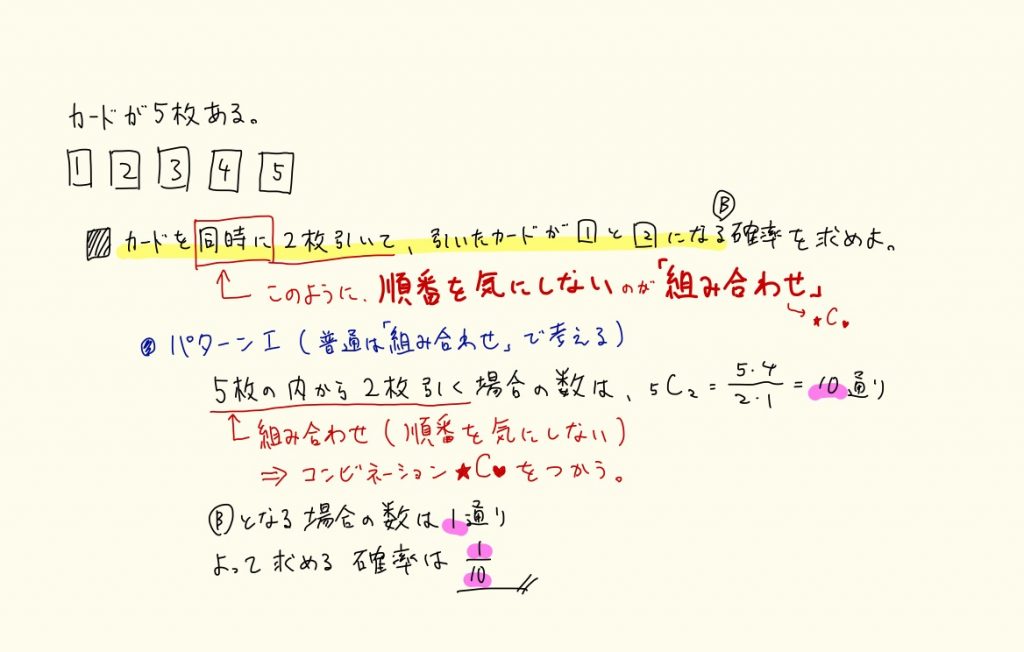 カードが5枚ある。
1 2 3 4 5
Ⓑ
カードを同時に2枚引いて、引いたカードが1と2になる確率を求めよ。
このように、順番を気にしないのが「組み合わせ」
★C♥
パターンI(普通は「組み合わせ」で考える)
5枚の内から2枚引く場合の数は、₅C₂ = 5・4/2・1 = 10通り
組み合わせ(順番を気にしない)
⇒ コンビネーション★C♥をつかう。
Ⓑとなる場合の数は1通り
よって求める確率は 1/10